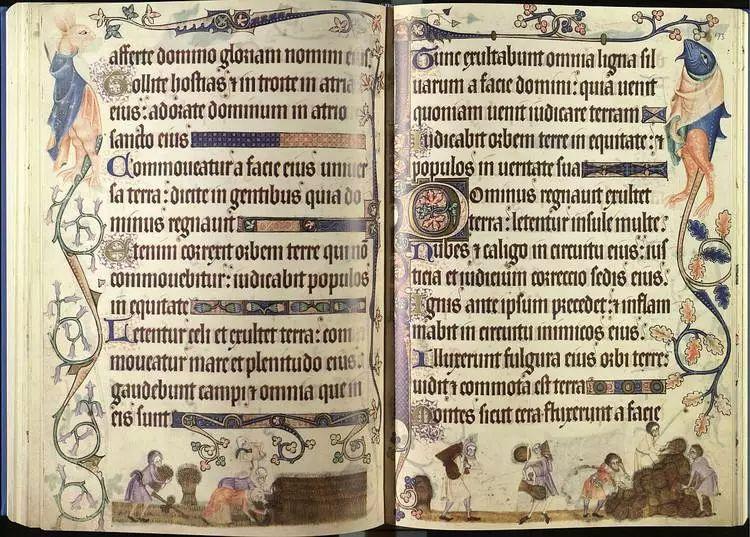 afferte domino gloriam nomini eius.
Tollite hostias ⁊ in troite in atria
eius: adorate dominum in atrio
sancto eius
Commoueatur a facie eius uniuer
sa terra: dicite in gentibus quia do
minus regnauit
Etenim correxit orbem terre qui nō
commouebitur: iudicabit populos
in equitate
Letentur celi et exultet terra: com
moueatur mare et plenitudo eius.
gaudebunt campi ⁊ omnia que in
eis sunt
Tunc exultabunt omnia ligna sil
uarum a facie domini: quia uenit
quoniam uenit iudicare terram
Iudicabit orbem terre in equitate: ⁊
populos in ueritate sua
Dominus regnauit exultet
terra: letentur insule multe.
Nubes ⁊ caligo in circuitu eius: ius
ticia et iudicium correccio sedis eius.
Ignis ante ipsum precedet: ⁊ inflam
mabit in circuitu inimicos eius.
Illuxerunt fulgura eius orbi terre:
uidit ⁊ commota est terra
Montes sicut cera fluxerunt a facie